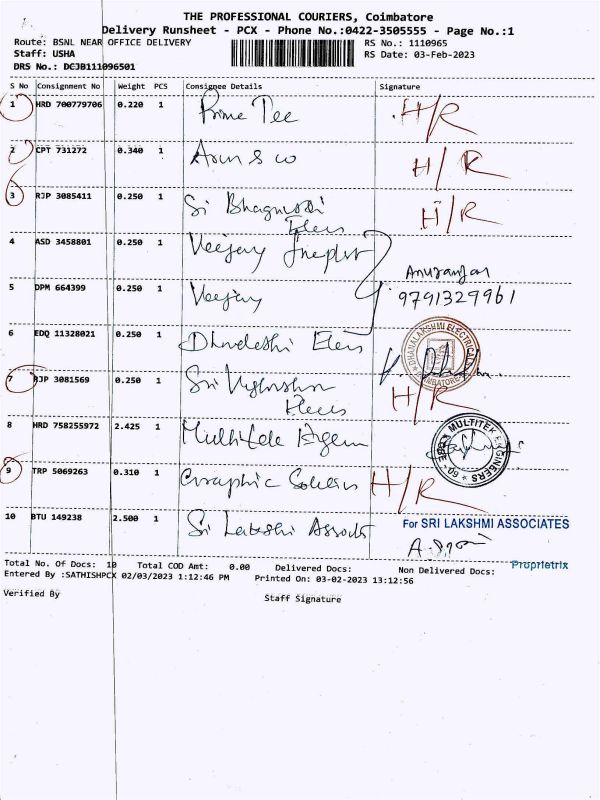 THE PROFESSIONAL COURIERS, Coimbatore
Delivery Runsheet - PCX - Phone No.:0422-3505555 - Page No.:1
Route: BSNL NEAR OFFICE DELIVERY
RS No.: 1110965
Staff: USHA
RS Date: 03-Feb-2023
DRS No.: DCJB111096501
S No Consignment No Weight PCS Consignee Details Signature
1 HRD 700779706 0.220 1 Prime Tee H/R
2 CPT 731272 0.340 1 Arun & co H/R
3 RJP 3085411 0.250 1 Sri H/R
4 ASD 3458801 0.250 1 Veejay
5 DPM 664399 0.250 1 Veejay
9791329961
6 EDQ 11328021 0.250 1
DHANALAKSHMI ELECTRICALS
COIMBATORE
7 RJP 3081569 0.250 1 Sri H/R
8 HRD 758255972 2.425 1
MULTITEK ENGINEERS
9 TRP 5069263 0.310 1 Graphic H/R
10 BTU 149238 2.500 1 Sri
For SRI LAKSHMI ASSOCIATES
Proprietrix
Total No. Of Docs: 10 Total COD Amt: 0.00 Delivered Docs: Non Delivered Docs:
Entered By :SATHISHPCX 02/03/2023 1:12:46 PM Printed On: 03-02-2023 13:12:56
Verified By Staff Signature